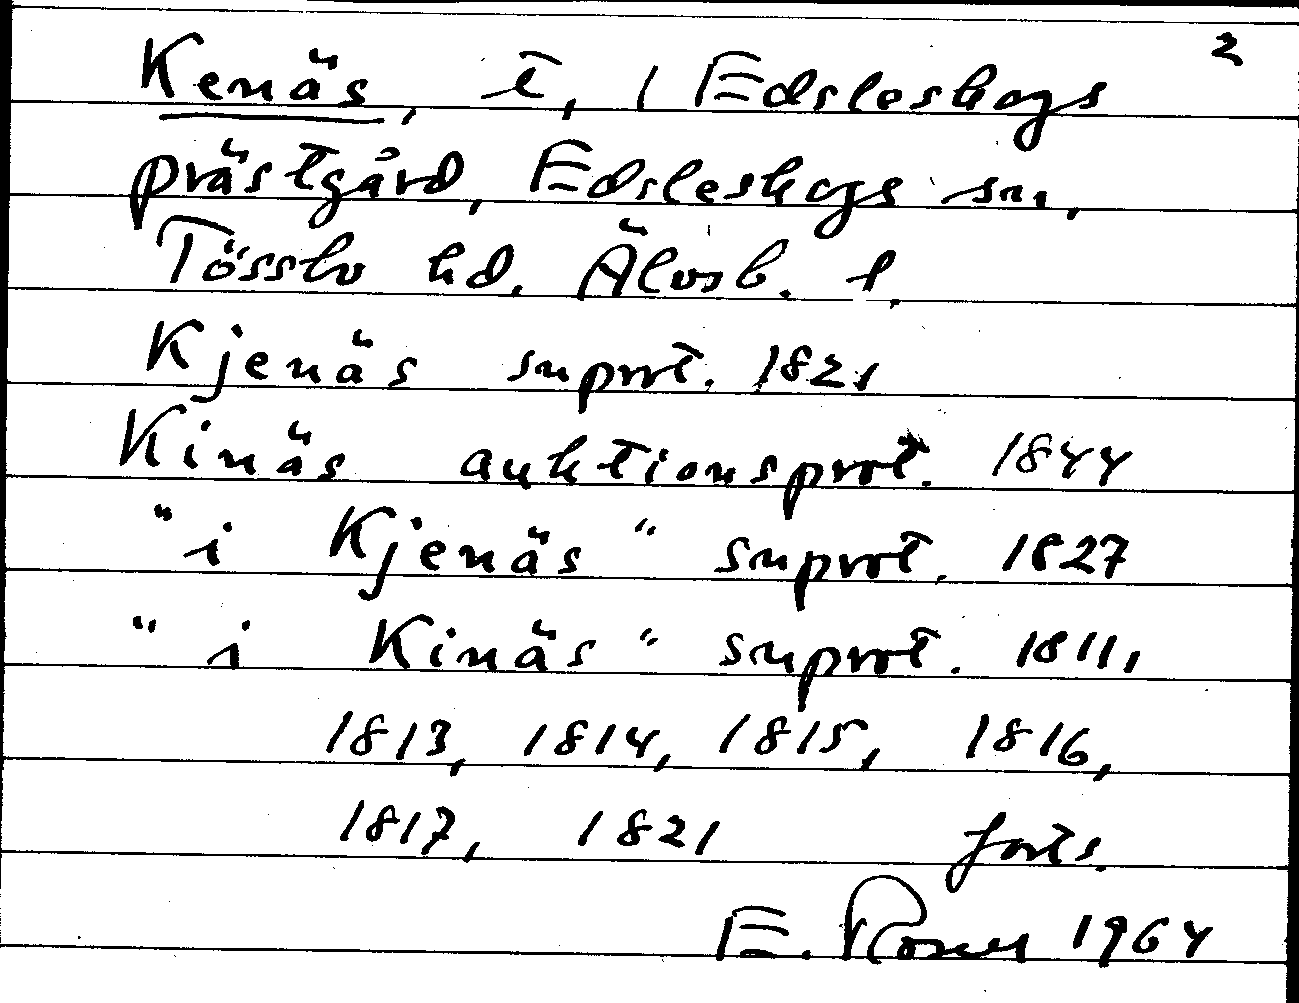 2
Kenäs, t, i Edsleskogs
prästgård, Edsleskogs sn,
Tössbo hd. Älvsb. l.
Kjenäs snprot. 1821
Kinäs auktionsprot. 1844
"i Kjenäs" snprot. 1827
"i Kinäs" snprot. 1811,
1813, 1814, 1815, 1816,
1817, 1821 forts.
E. 1964